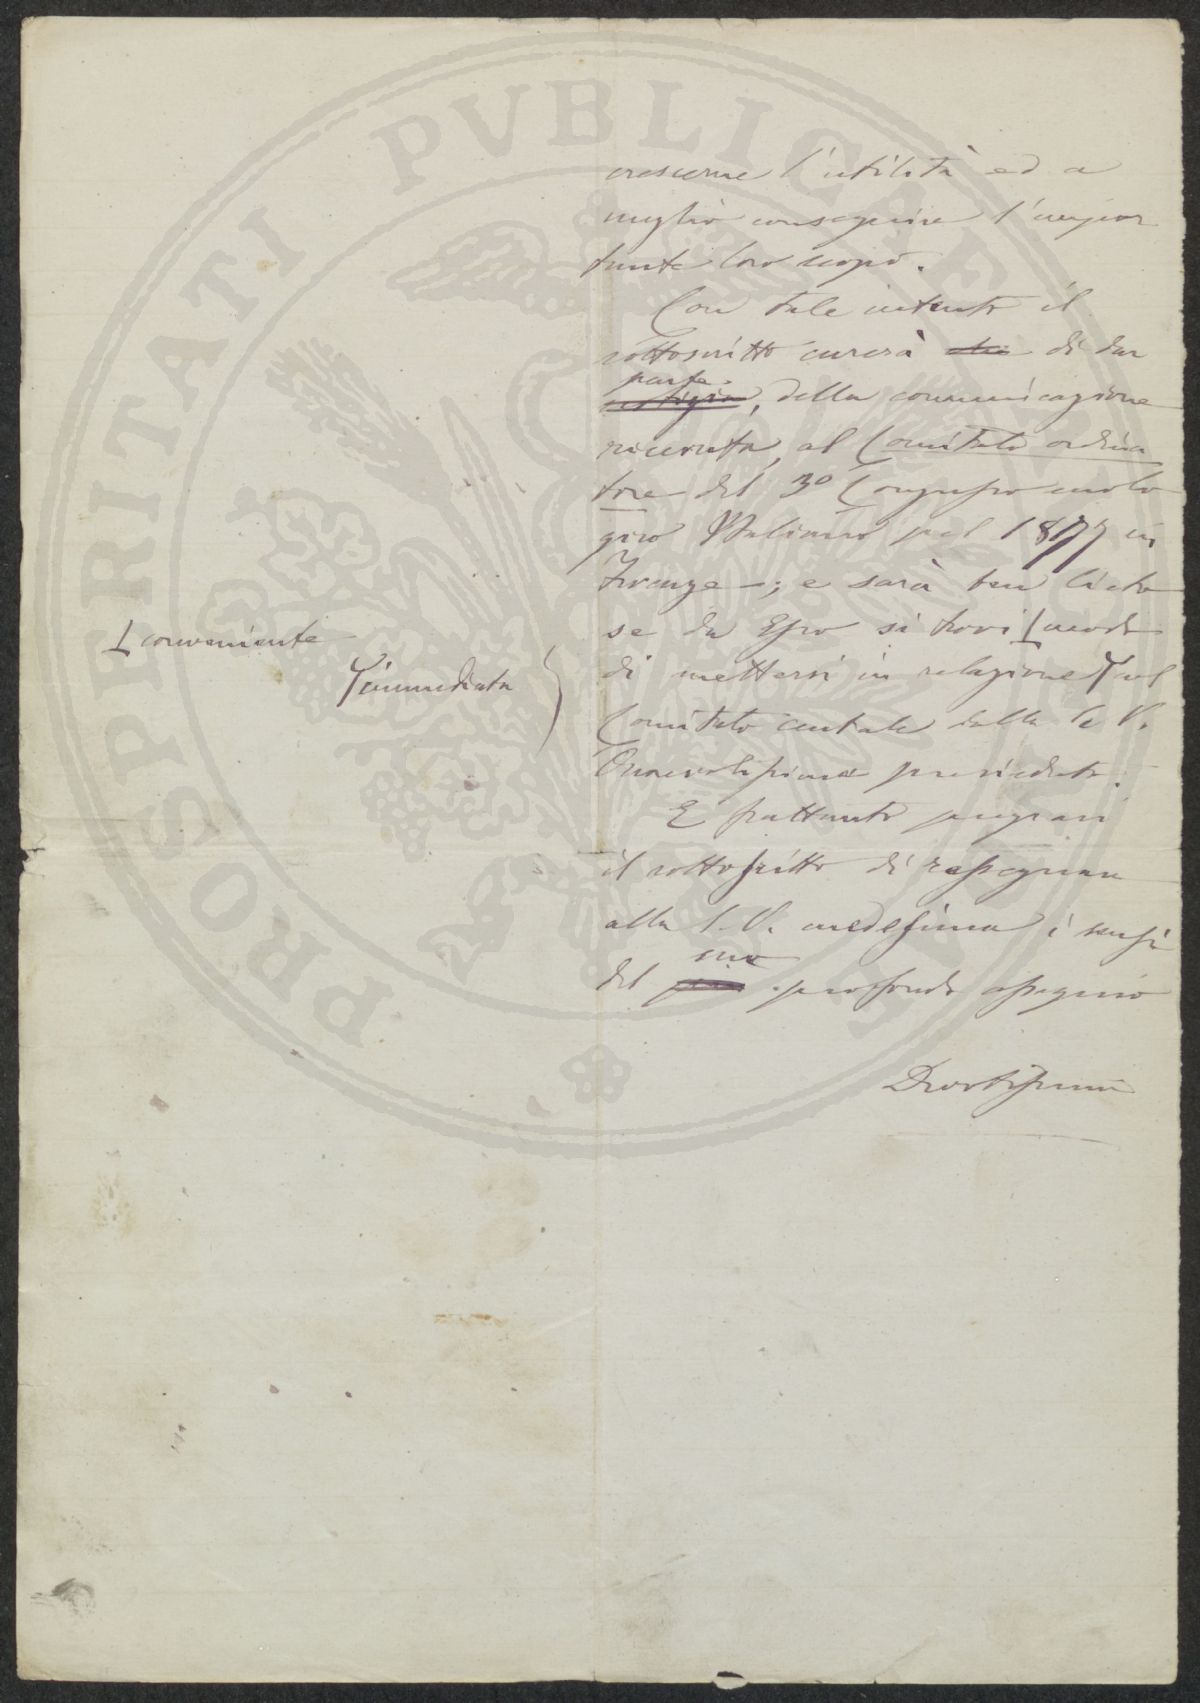 PROSPERITATI PVBLICAE
crescerne l'utilità ed a
meglio conseguire l'impor
tante loro scopo.
Con tale intento il
sottoscritto curerà di dar
parte, della comunicazione
ricevuta, al Comitato ordina
tore del 3o Congresso enolo
gico Italiano pel 1877 in
Firenze —; e sarà ben lieto
se da Esso si trovi modo
⊥ conveniente
di mettersi in relazione col
immediata
Comitato centrale dalla S. V.
Onorevolissima presieduto.
E frattanto pregiasi
il sottoscritto di rassegnare
alla S. V. medesima i sensi
suo
del profondo ossequio
Devotissimo